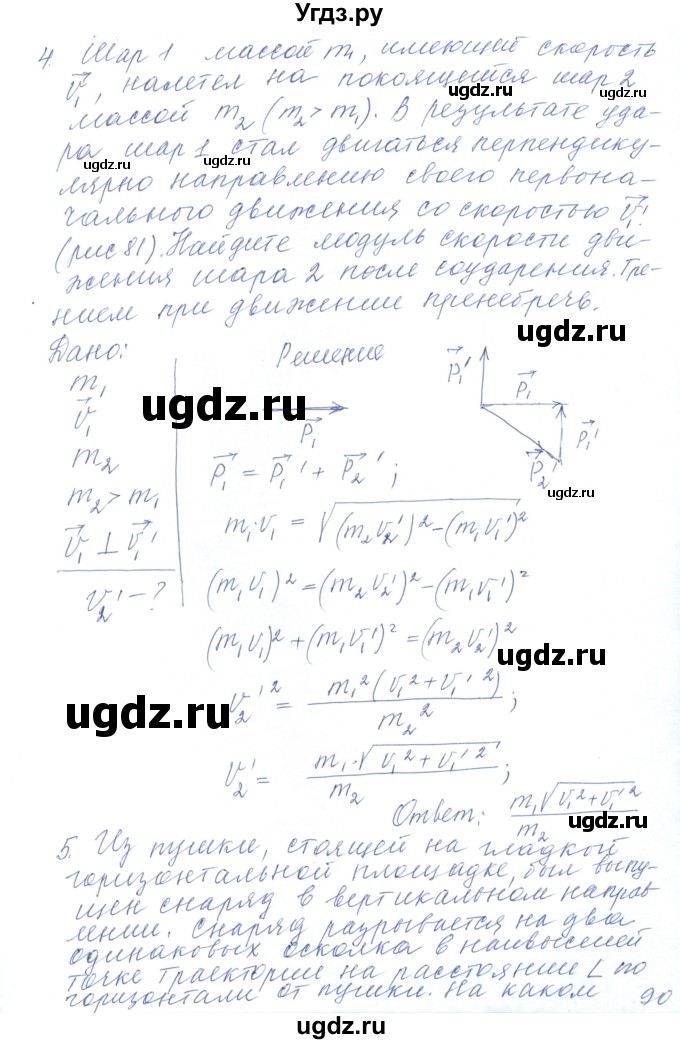 Угдз.ру
4. Шар 1 массой m₁, имеющий скорость
v⃗₁, налетел на покоящийся шар 2
массой m₂ (m₂ > m₁). В результате уда-
ра шар 1 стал двигаться перпендику-
лярно направлению своего первона-
чального движения со скоростью v⃗₁'
(рис 81). Найдите модуль скорости дви-
жения шара 2 после соударения. Тре-
нием при движении пренебречь.
Дано:
m₁
v⃗₁
m₂
m₂ > m₁
v⃗₁ ⊥ v⃗₁'
v₂' – ?
Решение
P⃗₁
P⃗₁'
P⃗₁
P⃗₁'
P⃗₂'
P⃗₁ = P⃗₁' + P⃗₂' ;
m₁·v₁ = √((m₂v₂')² – (m₁v₁')²)
(m₁v₁)² = (m₂v₂')² – (m₁v₁')²
(m₁v₁)² + (m₁v₁')² = (m₂v₂')²
v₂'² = m₁²(v₁² + v₁'²) / m₂² ;
v₂' = m₁·√(v₁² + v₁'²) / m₂ ;
Ответ: m₁√(v₁² + v₁'²) / m₂
5. Из пушки, стоящей на гладкой
горизонтальной площадке, был выпу-
щен снаряд в вертикальном направ-
лении. Снаряд разрывается на два
одинаковых осколка в наивысшей
точке траектории на расстоянии L по
горизонтали от пушки. На каком
90
ugdz.ru
ugdz.ru
ugdz.ru
ugdz.ru
ugdz.ru
ugdz.ru
ugdz.ru
ugdz.ru
ugdz.ru
ugdz.ru
ugdz.ru
ugdz.ru